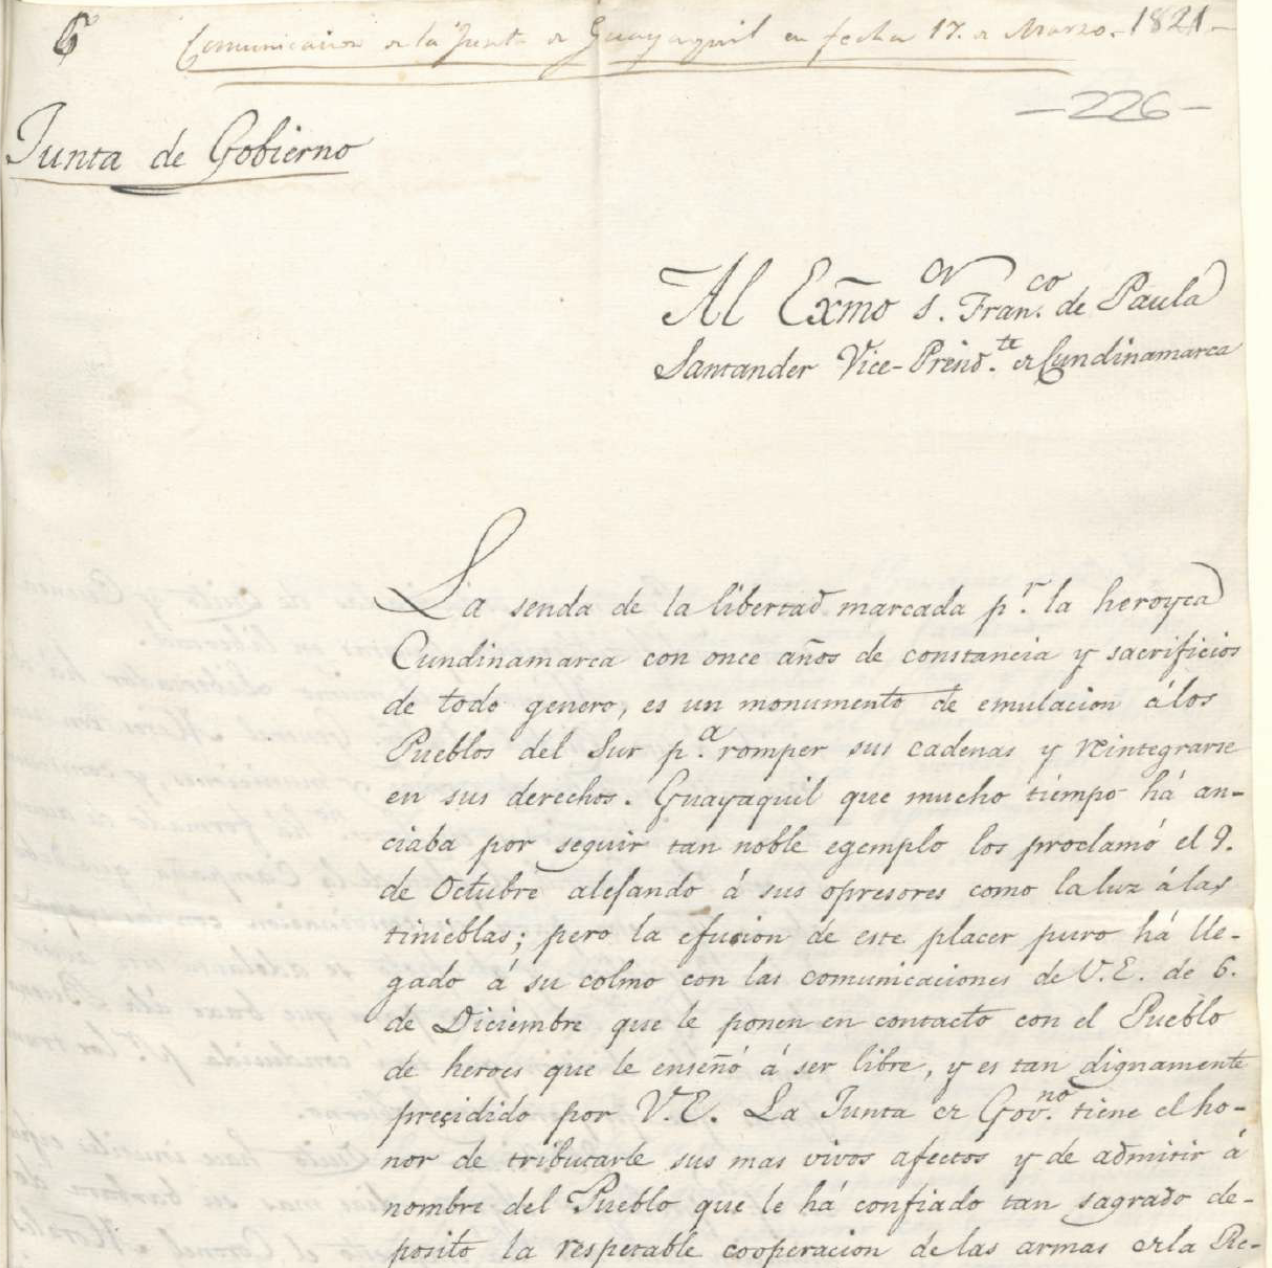 6
Comunicacion de la Junta de Guayaquil en fecha 17. de Marzo. 1821.
-226-
Junta de Gobierno
Al Exmo Sor. Franco. de Paula
Santander Vice-Presidte. de Cundinamarca
La senda de la libertad marcada pr. la heroyca
Cundinamarca con once años de constancia y sacrificios
de todo genero, es un monumento de emulacion álos
Pueblos del Sur pa. romper sus cadenas y reintegrarse
en sus derechos. Guayaquil que mucho tiempo há an-
ciaba por seguir tan noble egemplo los proclamó el 9.
de Octubre alejando á sus opresores como la luz álas
tinieblas; pero la efusion de este placer puro há lle-
gado á su colmo con las comunicaciones de V.E. de 6.
de Diciembre que le ponen en contacto con el Pueblo
de heroes que le enseñó á ser libre, y es tan dignamente
preçidido por V.E. La Junta de Govno. tiene el ho-
nor de tributarle sus mas vivos afectos y de admitir á
nombre del Pueblo que le há confiado tan sagrado de-
posito la respetable cooperacion de las armas de la Re-